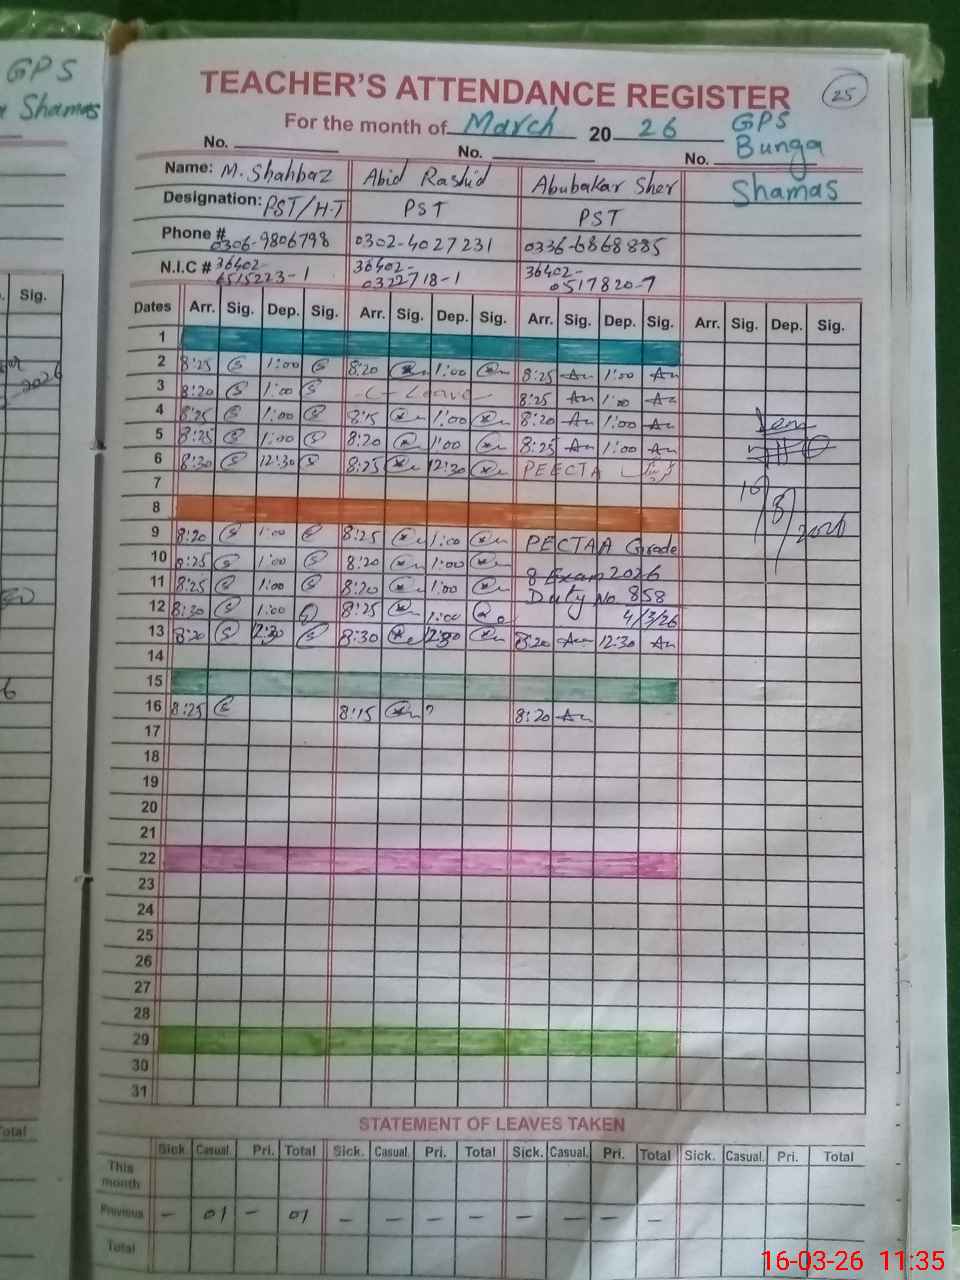 GPS
Shamas
TEACHER'S ATTENDANCE REGISTER
25
For the month of March 20 26 GPS
No. No. No. Bunga
Name: M. Shahbaz Abid Rashid Abubakar Sher Shamas
Designation: PST/H.T PST PST
Phone # 0306-9806798 0302-4027231 0336-6868885
N.I.C # 36402- 36402- 36402-
6515223-1 0322718-1 0517820-7
Sig.
Dates Arr. Sig. Dep. Sig. Arr. Sig. Dep. Sig. Arr. Sig. Dep. Sig. Arr. Sig. Dep. Sig.
1
2 8:25 1:00 8:20 1:00 8:25 1:00
3 8:20 1:00 C-Leave 8:25 1:00
4 8:25 1:00 8:15 1:00 8:20 1:00
5 8:25 1:00 8:20 1:00 8:25 1:00
6 8:30 12:30 8:25 12:30 PEECTA
7
8
9 8:20 1:00 8:25 1:00 PECTAA Grade
10 8:25 1:00 8:20 1:00 8 Exam 2026
11 8:25 1:00 8:20 1:00 Duty No. 858
12 8:30 1:00 8:25 1:00 4/3/26
13 8:20 12:30 8:30 12:30 8:20 12:30
14
15
16 8:25 8:15 8:20
17
18
19
20
21
22
23
24
25
26
27
28
29
30
31
2026
STATEMENT OF LEAVES TAKEN
Sick Casual. Pri. Total Sick. Casual. Pri. Total Sick. Casual. Pri. Total Sick. Casual. Pri. Total
This month
Previous - 01 - 01 - - - - - - - -
Total
16-03-26 11:35